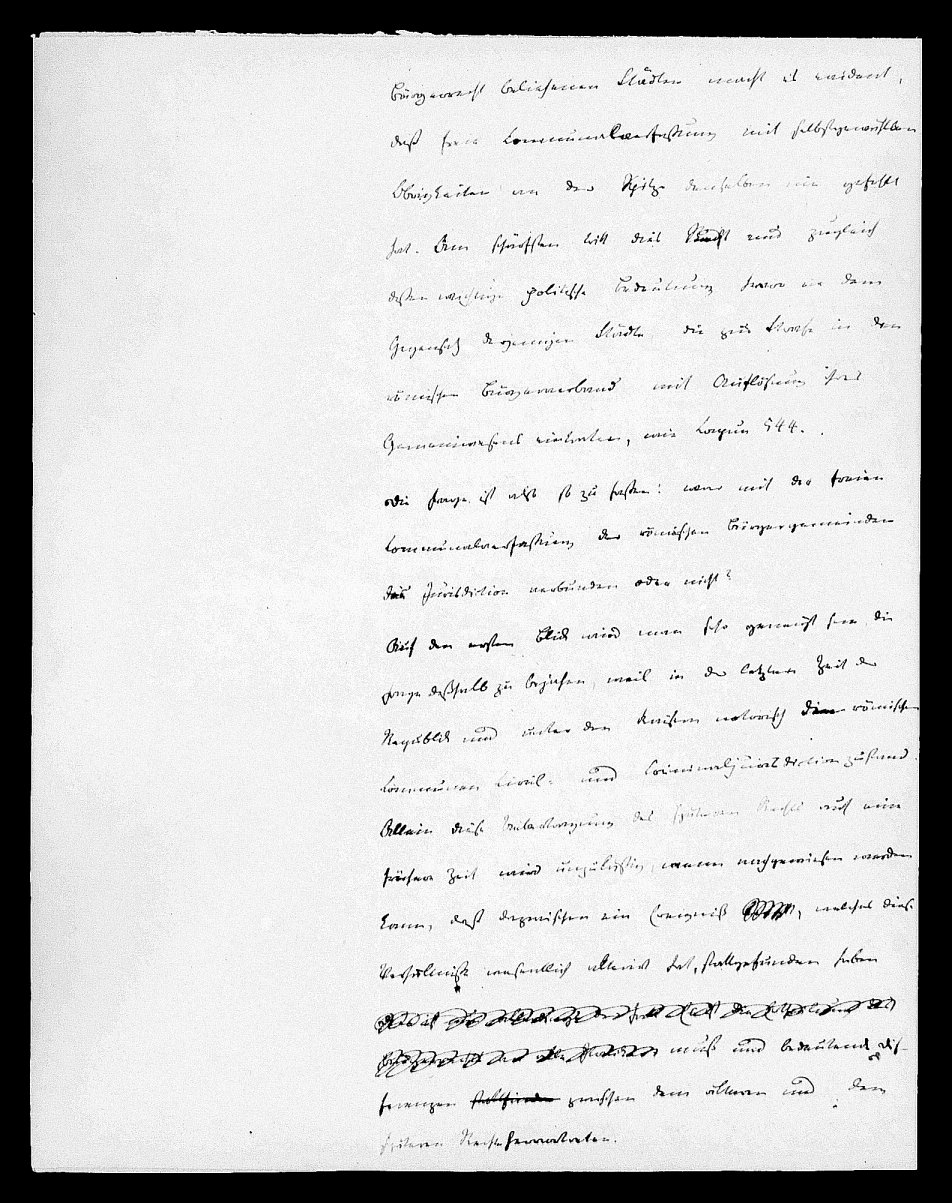 Bürgerrecht beliehenen Städten macht es evident,
daß freie Communalverfassung mit selbstgewählten
Obrigkeiten an der Spitze denselben nie gefehlt
hat. Am schärfsten tritt dies Recht und zugleich
dessen wichtige politische Bedeutung hervor in dem
Gegensatz derjenigen Städte, die zur Strafe in den
römischen Bürgerverband mit Auflösung ihres
Gemeinwesens eintraten, wie Capua 544.
Die Frage ist also so zu fassen: war mit der freien
Communalverfassung der römischen Bürgergemeinden
Jurisdiction verbunden oder nicht?
Auf den ersten Blick wird man sehr geneigt sein die
Frage deßhalb zu bejahen, weil in der letzten Zeit der
Republik und unter den Kaisern notorisch den römischen
Communen Civil- und Criminaljurisdiction zustand.
Allein diese Uebertragung des späteren Rechts auf eine
frühere Zeit wird unzulässig, wenn nachgewiesen werden
kann, daß dazwischen ein Ereigniß, welches diese
Verhältnisse wesentlich alterirt hat, stattgefunden haben
muß und bedeutende Dif-
ferenzen zwischen dem älteren und dem
späteren Rechte hervortreten.